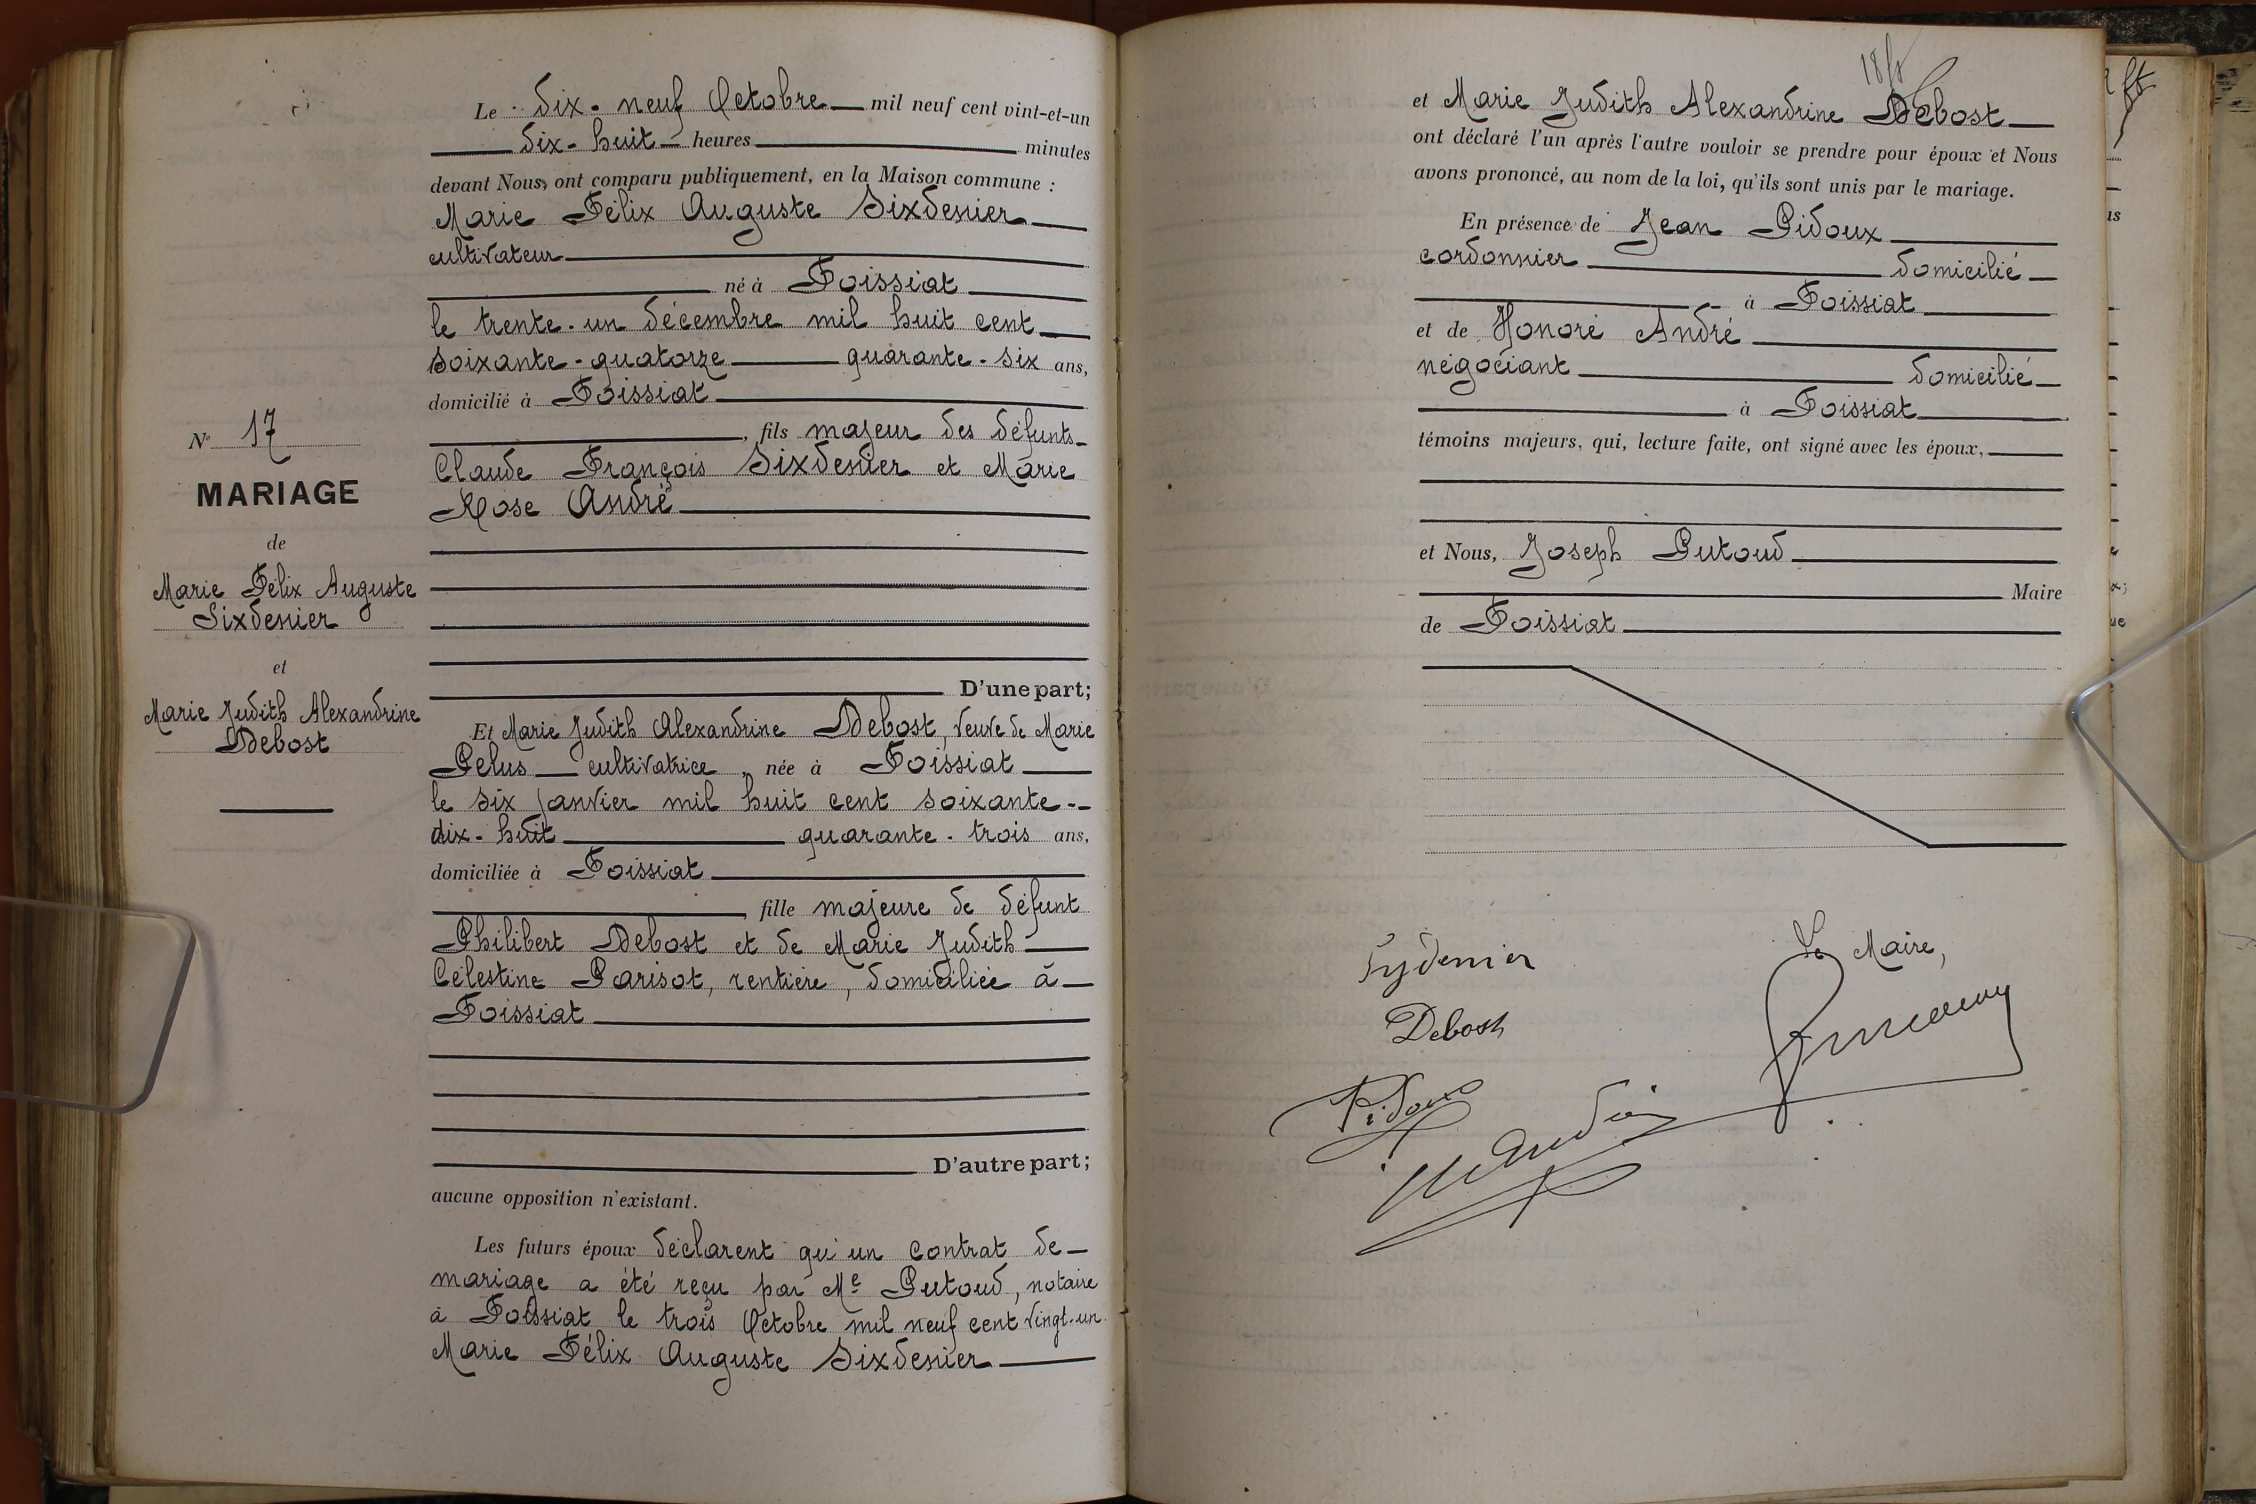 Le dix-neuf Octobre mil neuf cent vint-et-un
dix-huit heures minutes
devant Nous, ont comparu publiquement, en la Maison commune :
Marie Félix Auguste Sixdenier
cultivateur
né à Foissiat
le trente-un décembre mil huit cent
soixante-quatorze quarante-six ans,
domicilié à Foissiat
, fils majeur des défunts
Claude François Sixdenier et Marie
Rose André
D'une part;
Et Marie Judith Alexandrine Debost, veuve de Marie
Pelus cultivatrice, née à Foissiat
le six janvier mil huit cent soixante-
dix-huit quarante-trois ans,
domiciliée à Foissiat
, fille majeure de défunt
Philibert Debost et de Marie Judith
Célestine Parisot, rentière, domiciliée à
Foissiat
D'autre part;
aucune opposition n'existant.
Les futurs époux déclarent qu'un contrat de
mariage a été reçu par Me Putoud, notaire
à Foissiat le trois Octobre mil neuf cent vingt-un
Marie Félix Auguste Sixdenier
No 17
MARIAGE
de
Marie Félix Auguste
Sixdenier
et
Marie Judith Alexandrine
Debost
et Marie Judith Alexandrine Debost
ont déclaré l'un après l'autre vouloir se prendre pour époux et Nous
avons prononcé, au nom de la loi, qu'ils sont unis par le mariage.
En présence de Jean Pidoux
cordonnier domicilié
à Foissiat
et de Honoré André
négociant domicilié
à Foissiat
témoins majeurs, qui, lecture faite, ont signé avec les époux,
et Nous, Joseph Putoud
Maire
de Foissiat
Sydenier
Le Maire,
Debost
Pidoux